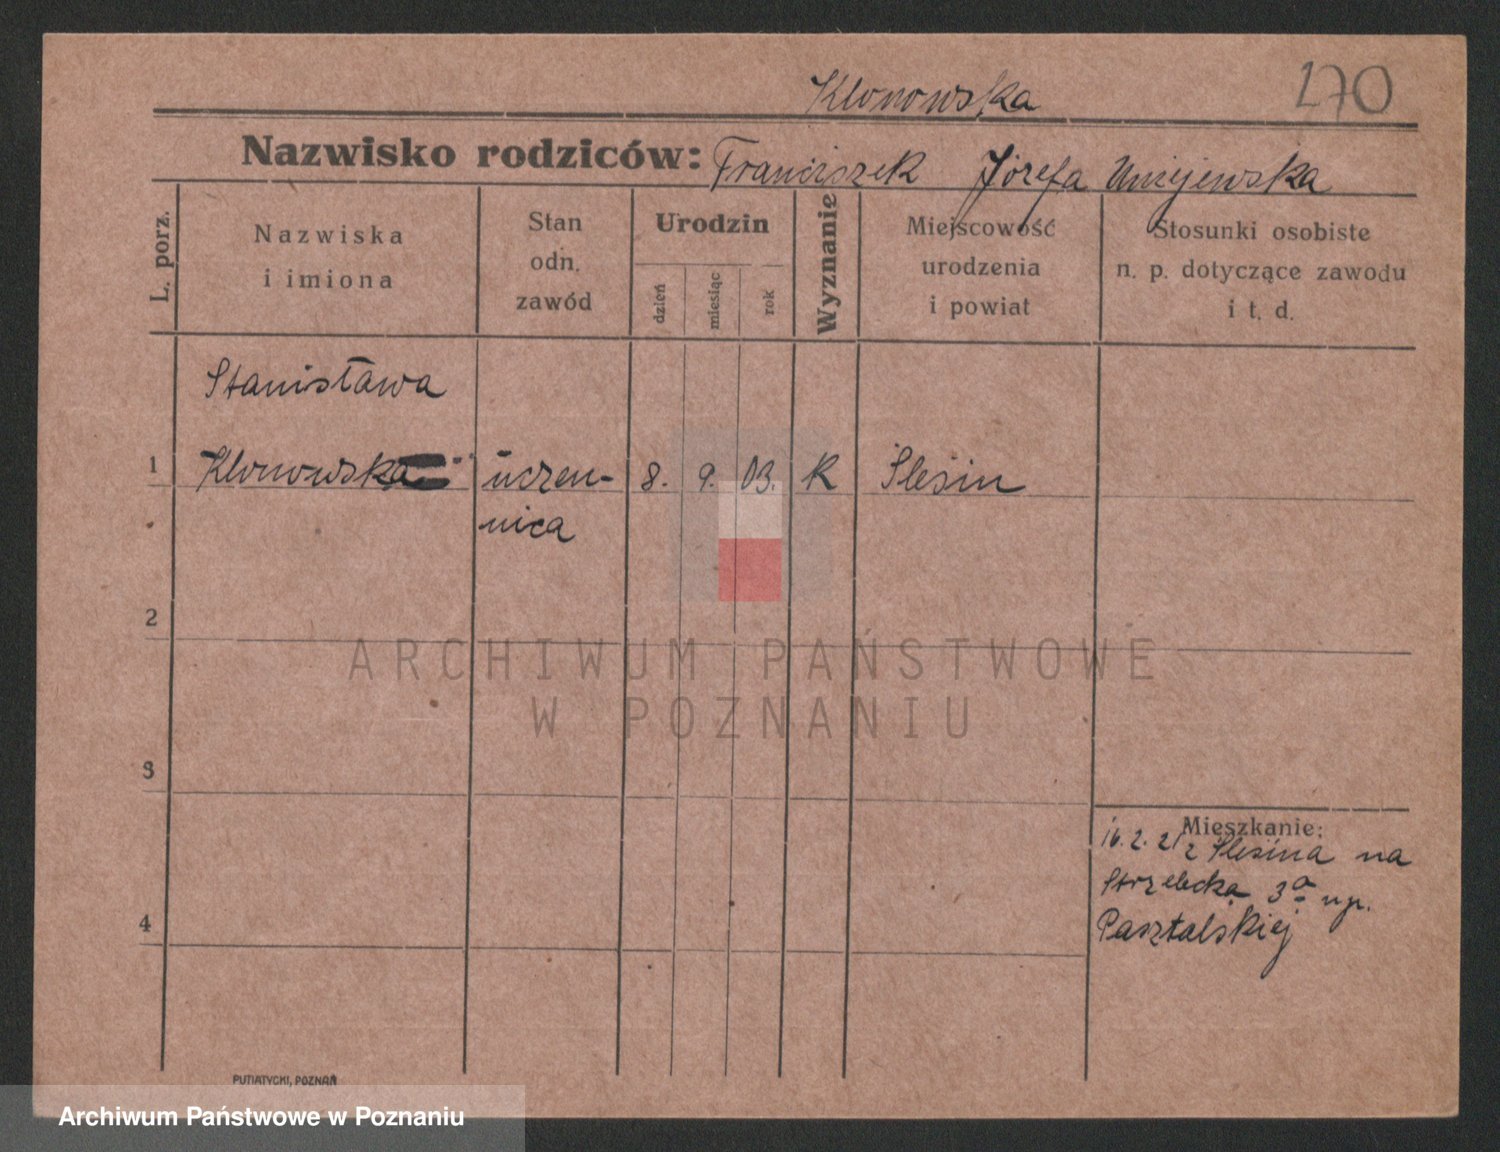 Klonowska
170
Nazwisko rodziców: Franciszek Józefa Unijewska
L. porz.
Nazwiska
i imiona
Stan
odn.
zawód
Urodzin
dzień
miesiąc
rok
Wyznanie
Miejscowość
urodzenia
i powiat
Stosunki osobiste
n. p. dotyczące zawodu
i t. d.
Stanisława
1 Klonowska uczen- 8. 9. 03. K Slesin
nica
2
ARCHIWUM PAŃSTWOWE
W POZNANIU
3
Mieszkanie:
16.2.21 z Slesina na
Strzelecka 3a u p.
Pasztalskiej
4
PUTIATYCKI, POZNAŃ
Archiwum Państwowe w Poznaniu